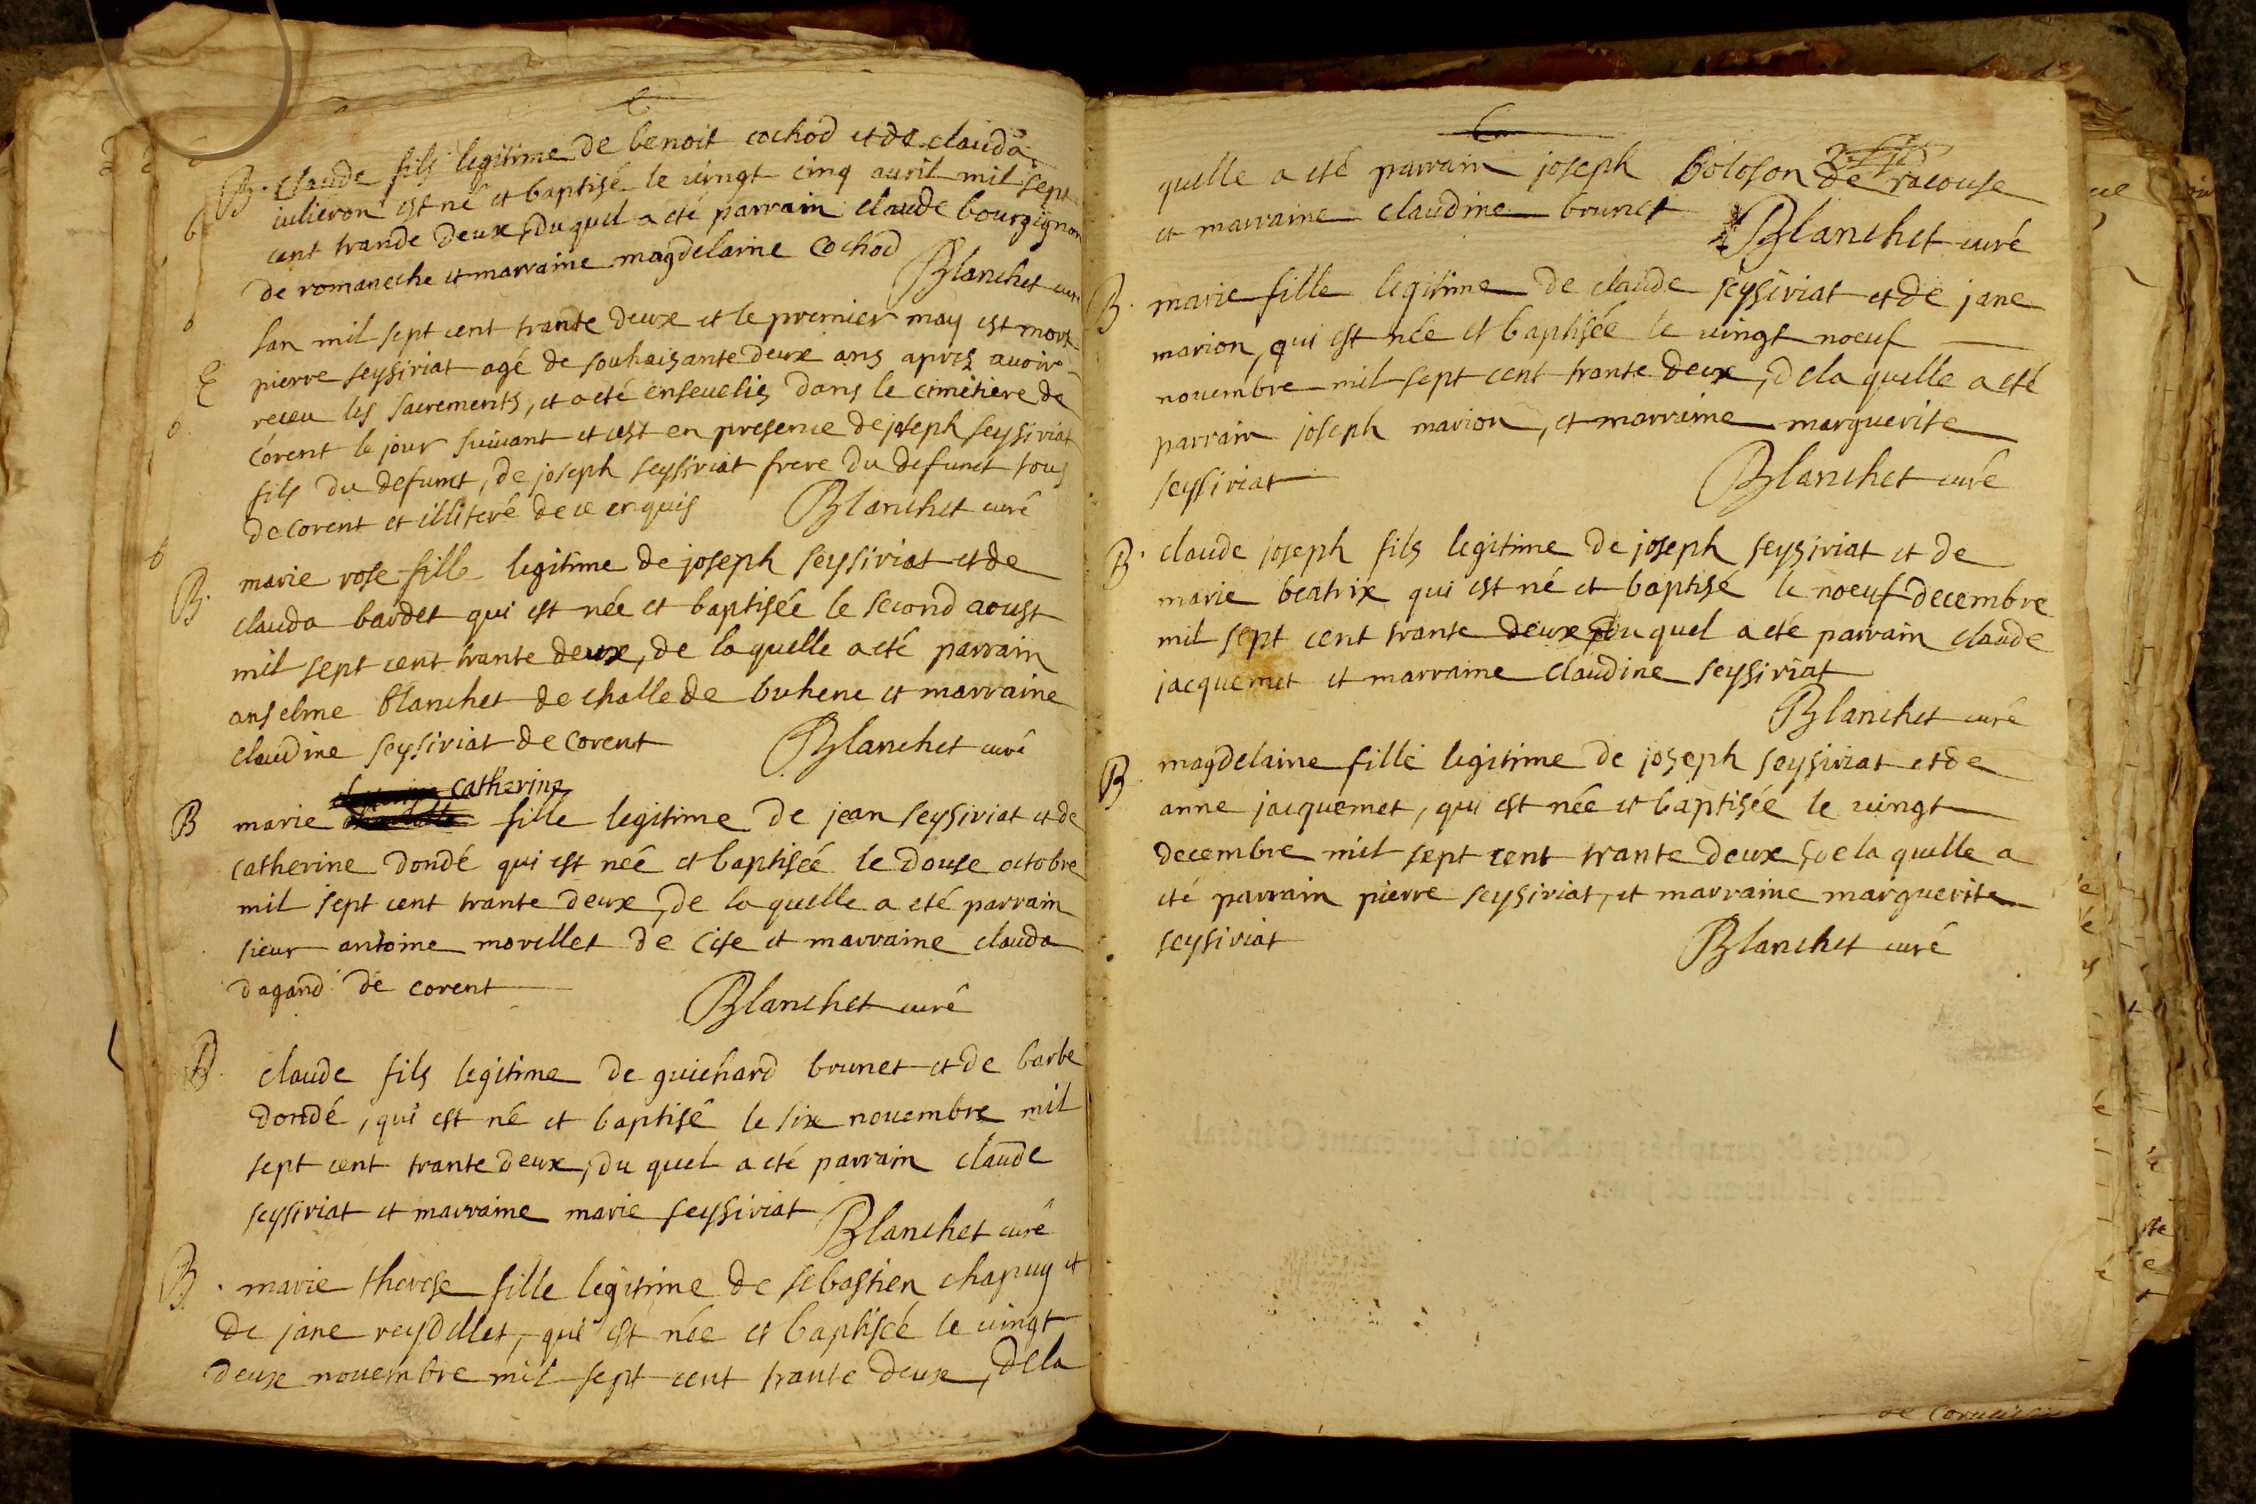 B. claude fils legitime de benoit cochod et de clauda
iulieron est né et baptisé le uingt cinq auril mil sept
cent trande deux, du quel a eté parrain claude bourgignon
de romaneche et marraine magdelaine cochod
Blanchet curé
lan mil sept cent trante deux et le premier may est mort
E pierre seysiriat agé de souhaisante deux ans apres auoir
receu les sacrements, et a eté enseuelis dans le cimetiere de
corent le jour suiuant et cest en presence de joseph seysiriat
fils du defunct, de joseph seysiriat frere du defunct tous
de corent et illiteré de ce enquis Blanchet curé
B. marie rose fille legitime de joseph seysiriat et de
clauda bardet qui est née et baptisée le second aoust
mil sept cent trante deux, de la quelle a eté parrain
anselme blanchet de challe de buhene et marraine
claudine seysiriat de corent Blanchet curé
catherine
B marie fille legitime de jean seysiriat et de
catherine dondé qui est neé et baptisée le douse octobre
mil sept cent trante deux, de la quelle a eté parrain
sieur antoine morellet de cise et marraine clauda
dagand de corent
Blanchet curé
B. claude fils legitime de guichard brunet et de barbe
dondé, qui est né et baptisé le six nouembre mil
sept cent trante deux, du quel a eté parrain claude
seysiriat et marraine marie seysiriat
Blanchet curé
B. marie therese fille legitime de sebastien chapuy et
de jane reydellet, qui est née et baptiseé le uingt
deux nouembre mil sept cent trante deux, de la
quelle a eté parrain joseph boloson de racouse
et marraine claudine brunet
Blanchet curé
B. marie fille legitime de claude seysiriat et de jane
marion, qui est née et baptisée le uingt noeuf
nouembre mil sept cent trante deux, de la quelle a eté
parrain joseph marion, et marraine marguerite
seysiriat Blanchet curé
B. claude joseph fils legitime de joseph seysiriat et de
marie beatrix qui est né et baptisé le noeuf decembre
mil sept cent trante deux du quel a eté parrain claude
jacquemet et marraine claudine seysiriat
Blanchet curé
B. magdelaine fille legitime de joseph seysiriat et de
anne jacquemet, qui est née et baptisée le uingt
decembre mil sept cent trante deux, de la quelle a
eté parrain pierre seysiriat, et marraine marguerite
seysiriat Blanchet curé